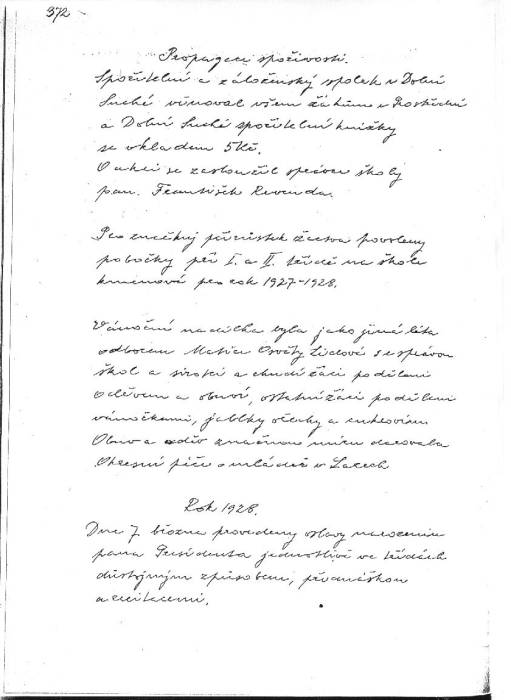 372
Propagace spořivosti.
Spořitelní a záloženský spolek v Dolní
Suché věnoval všem žákům v Prostřední
a Dolní Suché spořitelní knížky
se vkladem 5Kč.
O akci se zasloužil správce školy
pan. František Revenda.
Pro značný přírůstek žactva povoleny
pobočky při I. a II. třídě na škole
kmenové pro rok 1927-1928.
Vánoční nadílka byla jako jiná léta
odborem Matice Osvěty Lidové s správou
škol a sirotci a chudí žáci poděleni
oděvem a obuví, ostatní žáci poděleni
vánočkami, jablky ořechy a cukrovím
Obuv a oděv značnou měrou darovala
Okresní péče o mládež v Lazech
Rok 1928.
Dne 7. března provedeny oslavy narozenin
pana Presidenta jednotlivě ve třídách
důstojným způsobem, přednáškou
a recitacemi.